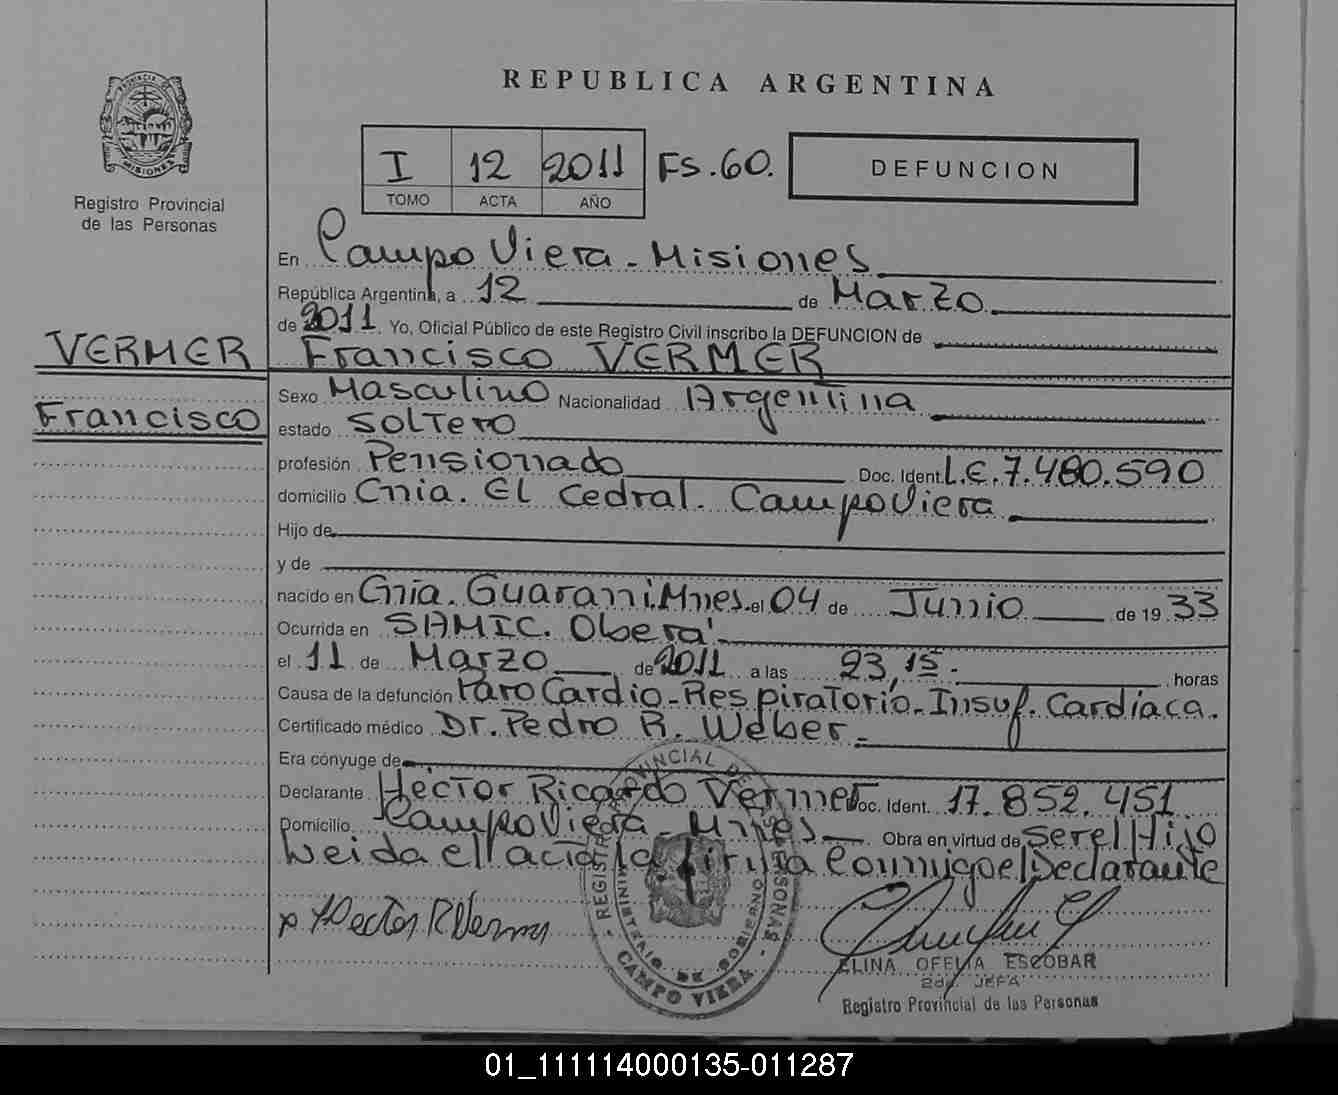 PROVINCIA DE MISIONES
Registro Provincial
de las Personas
REPUBLICA ARGENTINA
I 12 2011 FS.60.
TOMO ACTA AÑO
DEFUNCION
En Campo Viera - Misiones
República Argentina, a 12 de Marzo
de 2011 Yo, Oficial Público de este Registro Civil inscribo la DEFUNCION de
VERMER
Francisco
Francisco VERMER
Sexo Masculino Nacionalidad Argentina
estado Soltero
profesión Pensionado Doc. Ident. L.E. 7.480.590
domicilio Cnia. El Cedral. Campo Viera
Hijo de
y de
nacido en Cnia. Guarani.Mnes. el 04 de Junio de 19 33
Ocurrida en SAMIC. Oberá
el 11 de Marzo de 2011 a las 23,15. horas
Causa de la defunción Paro Cardio-Respiratorio-Insuf. Cardíaca.
Certificado médico Dr. Pedro R. Weber.
Era cónyuge de
Declarante Héctor Ricardo Vermer Doc. Ident. 17.852.451
Domicilio Campo Viera - Mnes Obra en virtud de ser el Hijo
Leida el acta la firma Conmigo el Declarante
x Hector R Verme
REGISTRO PROVINCIAL DE LAS PERSONAS
MINISTERIO DE GOBIERNO
CAMPO VIERA
ELINA OFELIA ESCOBAR
2da. JEFA
Registro Provincial de las Personas
01_111114000135-011287